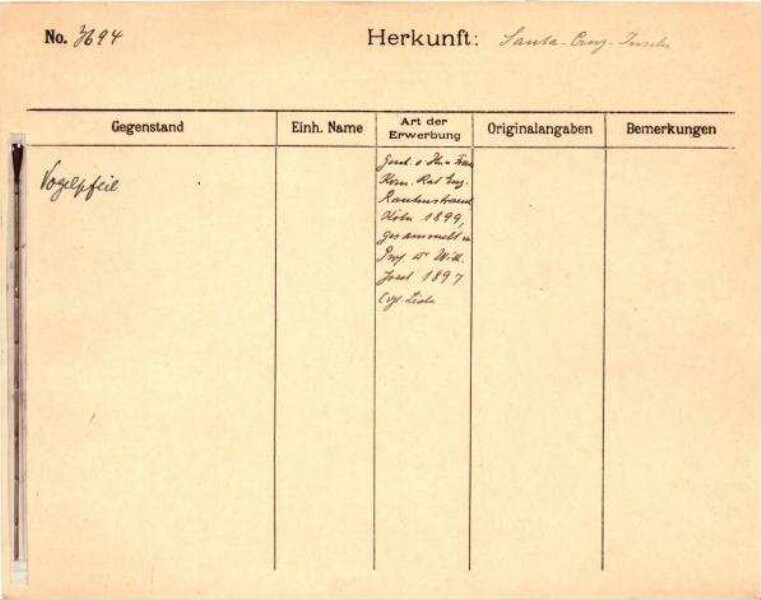 No. 3694
Herkunft: Santa-Cruz-Inseln
Gegenstand
Einh. Name
Art der
Erwerbung
Originalangaben
Bemerkungen
Vogelpfeil
Gesch. v. Frau
Kom. Rat Eug.
Rautenstrauch
Köln 1899,
gesammelt v.
Prof. Dr Wilh.
Joest 1897
Vgl. Liste